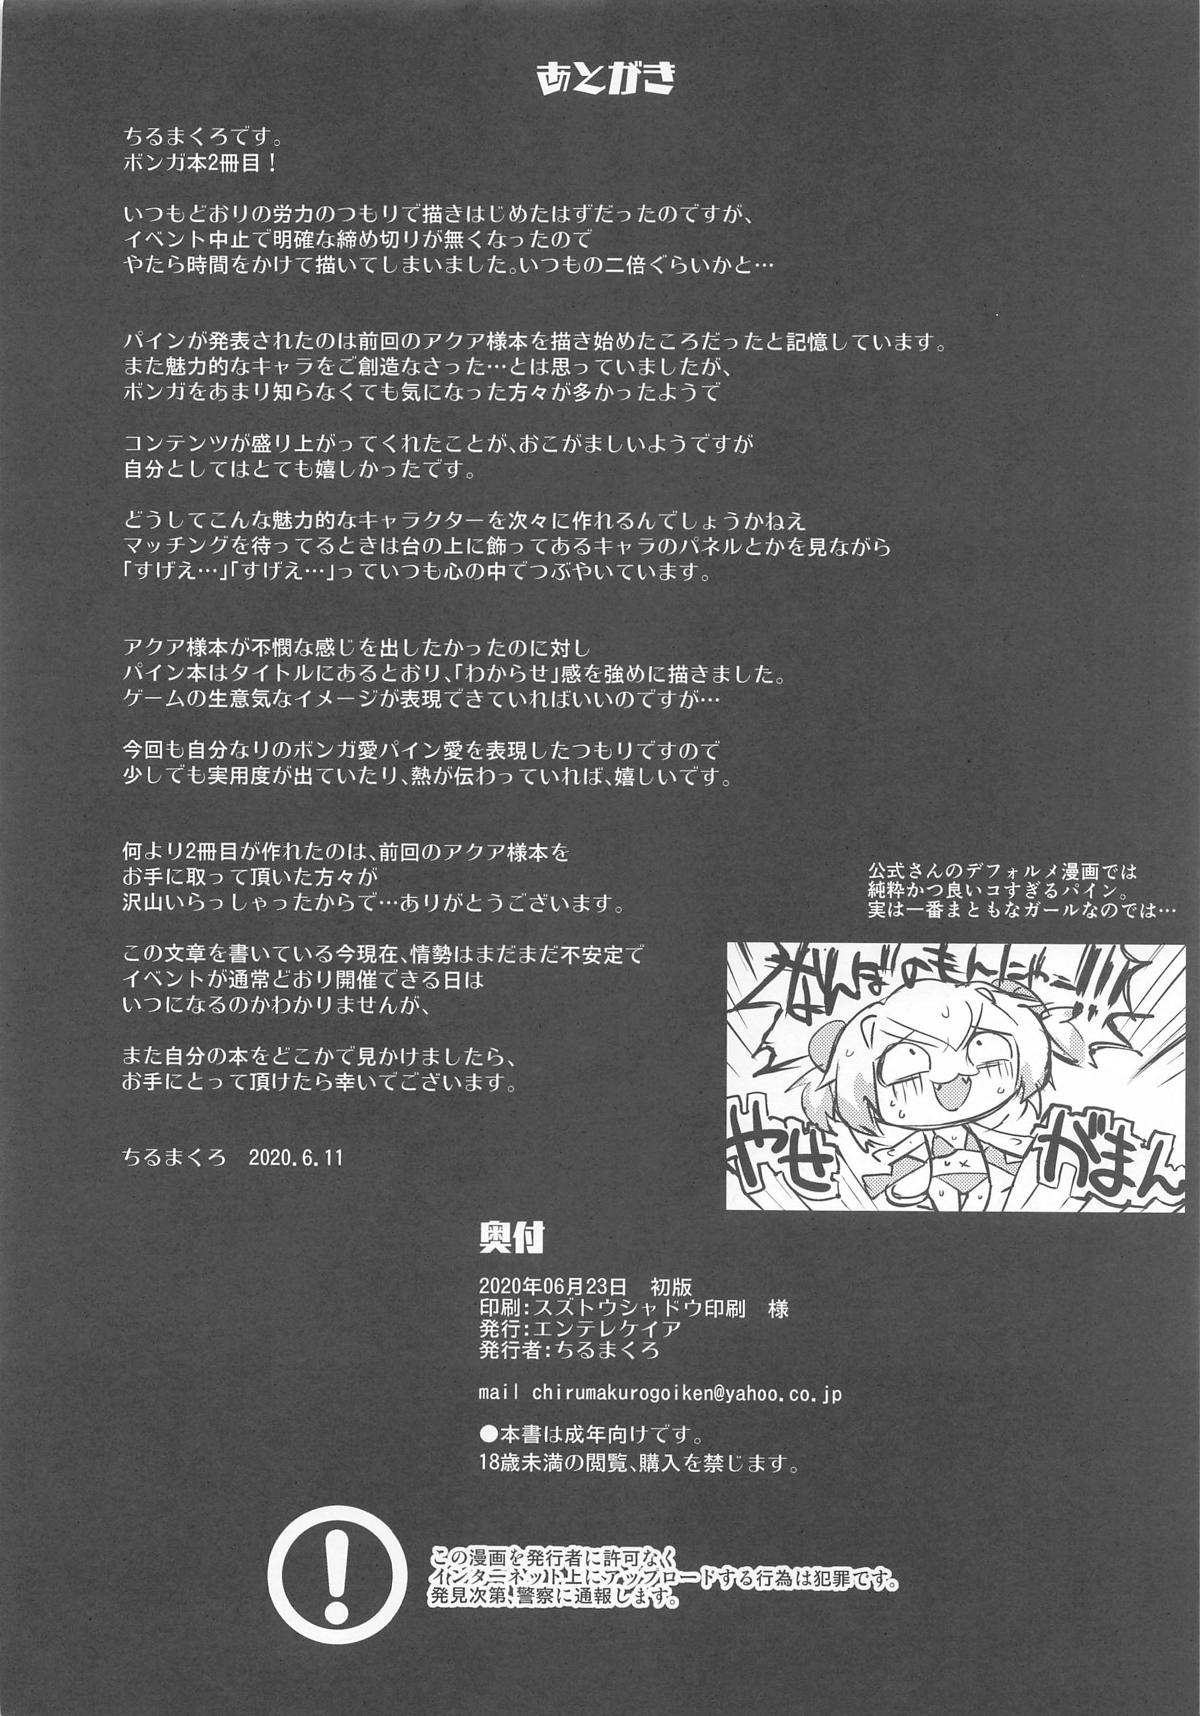 あとがき
ちるまくろです。
ボンガ本2冊目！
いつもどおりの労力のつもりで描きはじめたはずだったのですが、
イベント中止で明確な締め切りが無くなったので
やたら時間をかけて描いてしまいました。いつもの二倍ぐらいかと…
パインが発表されたのは前回のアクア様本を描き始めたころだったと記憶しています。
また魅力的なキャラをご創造なさった…とは思っていましたが、
ボンガをあまり知らなくても気になった方々が多かったようで
コンテンツが盛り上がってくれたことが、おこがましいようですが
自分としてはとても嬉しかったです。
どうしてこんな魅力的なキャラクターを次々に作れるんでしょうかねえ
マッチングを待ってるときは台の上に飾ってあるキャラのパネルとかを見ながら
「すげえ…」「すげえ…」っていつも心の中でつぶやいています。
アクア様本が不憫な感じを出したかったのに対し
パイン本はタイトルにあるとおり、「わからせ」感を強めに描きました。
ゲームの生意気なイメージが表現できていればいいのですが…
今回も自分なりのボンガ愛パイン愛を表現したつもりですので
少しでも実用度が出ていたり、熱が伝わっていれば、嬉しいです。
何より2冊目が作れたのは、前回のアクア様本を
お手に取って頂いた方々が
沢山いらっしゃったからで…ありがとうございます。
この文章を書いている今現在、情勢はまだまだ不安定で
イベントが通常どおり開催できる日は
いつになるのかわかりませんが、
また自分の本をどこかで見かけましたら、
お手にとって頂けたら幸いでございます。
ちるまくろ 2020.6.11
公式さんのデフォルメ漫画では
純粋かつ良いコすぎるパイン。
実は一番まともなガールなのでは…
なんぼのもんじゃー!!!
やせ
がまん
奥付
2020年06月23日 初版
印刷：スズトウシャドウ印刷 様
発行：エンテレケイア
発行者：ちるまくろ
mail chirumakurogoiken@yahoo.co.jp
●本書は成年向けです。
18歳未満の閲覧、購入を禁じます。
この漫画を発行者に許可なく
インターネット上にアップロードする行為は犯罪です。
発見次第、警察に通報します。